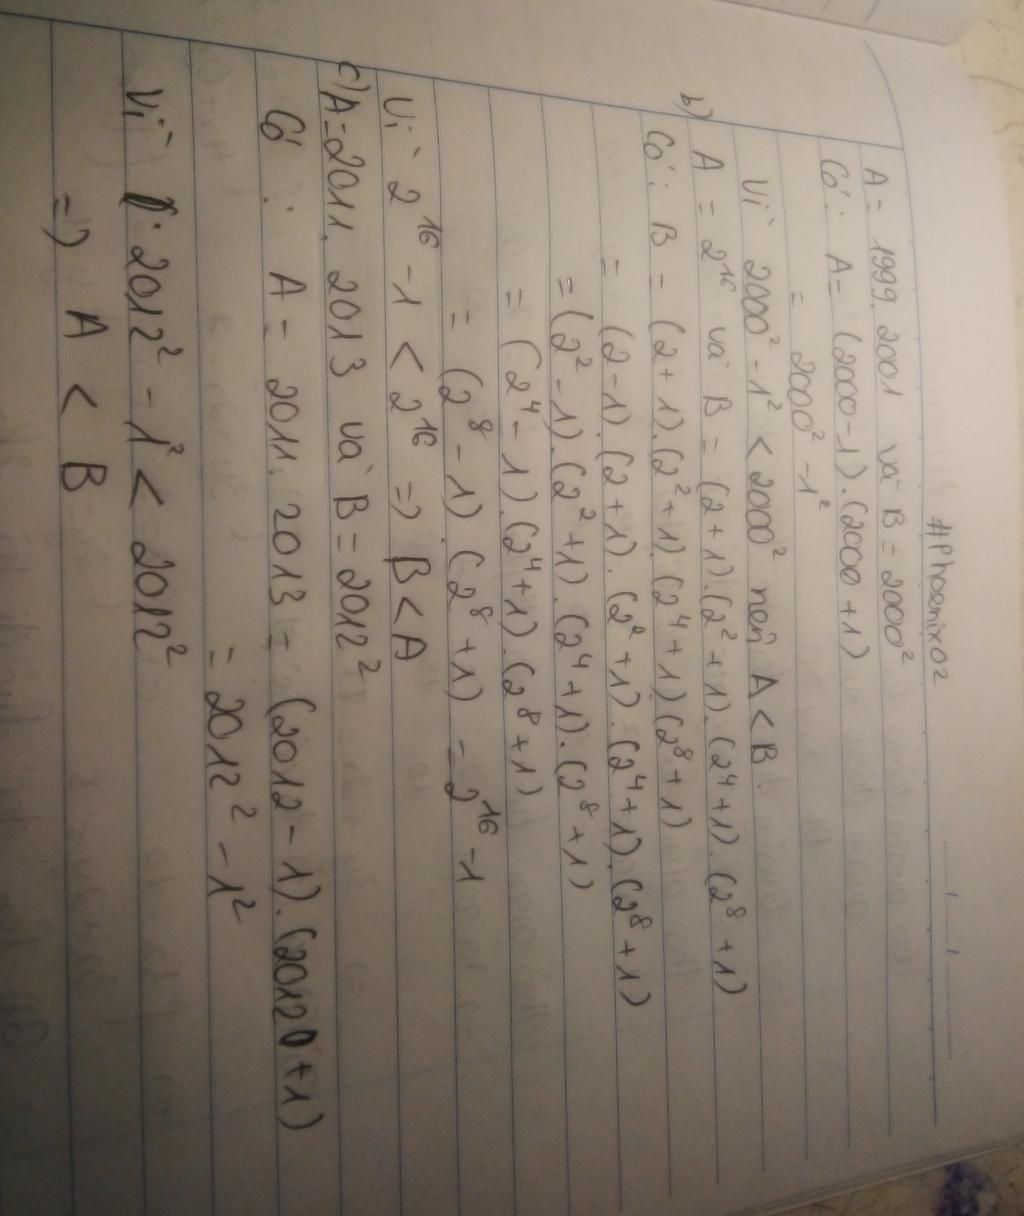 #Phoenix02
A = 1999. 2001 và B = 2000²
Có: A = (2000-1).(2000+1)
= 2000² - 1²
Vì 2000² - 1² < 2000² nên A < B.
b) A = 2¹⁶ và B = (2+1).(2²+1).(2⁴+1).(2⁸+1)
Có: B = (2+1).(2²+1).(2⁴+1)(2⁸+1)
= (2-1).(2+1).(2²+1).(2⁴+1).(2⁸+1)
= (2²-1).(2²+1).(2⁴+1).(2⁸+1)
= (2⁴-1).(2⁴+1).(2⁸+1)
= (2⁸-1).(2⁸+1) = 2¹⁶-1
Vì 2¹⁶ - 1 < 2¹⁶ => B < A
c) A = 2011. 2013 và B = 2012²
Có: A = 2011. 2013 = (2012-1).(2012+1)
= 2012² - 1²
Vì 2012² - 1² < 2012²
=> A < B